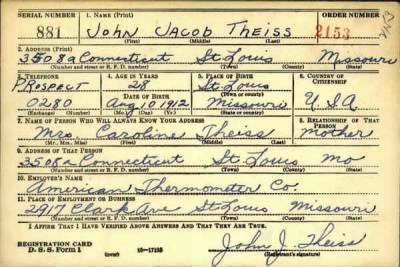 SERIAL NUMBER 1. NAME (Print) ORDER NUMBER
881 JOHN JACOB THEISS 2153
(First) (Middle) (Last)
2. ADDRESS (Print)
3508a Connecticut St Louis Missouri
(Number and street or R. F. D. number) (Town) (County) (State)
3. TELEPHONE 4. AGE IN YEARS 5. PLACE OF BIRTH 6. COUNTRY OF CITIZENSHIP
PROSPECT 28 St Louis
DATE OF BIRTH (Town or county)
0280 Aug 10 1912 Missouri U.S.A
(Exchange) (Number) (Mo.) (Day) (Yr.) (State or country)
7. NAME OF PERSON WHO WILL ALWAYS KNOW YOUR ADDRESS 8. RELATIONSHIP OF THAT PERSON
Mrs Caroline Theiss Mother
(Mr., Mrs., Miss) (First) (Middle) (Last)
9. ADDRESS OF THAT PERSON
3508a Connecticut St Louis Mo
(Number and street or R. F. D. number) (Town) (County) (State)
10. EMPLOYER'S NAME
American Thermometer Co.
11. PLACE OF EMPLOYMENT OR BUSINESS
2917 Clark Ave St Louis Missouri
(Number and street or R. F. D. number) (Town) (County) (State)
I AFFIRM THAT I HAVE VERIFIED ABOVE ANSWERS AND THAT THEY ARE TRUE.
REGISTRATION CARD
D. S. S. Form 1 (over) 16-17105 John J. Theiss